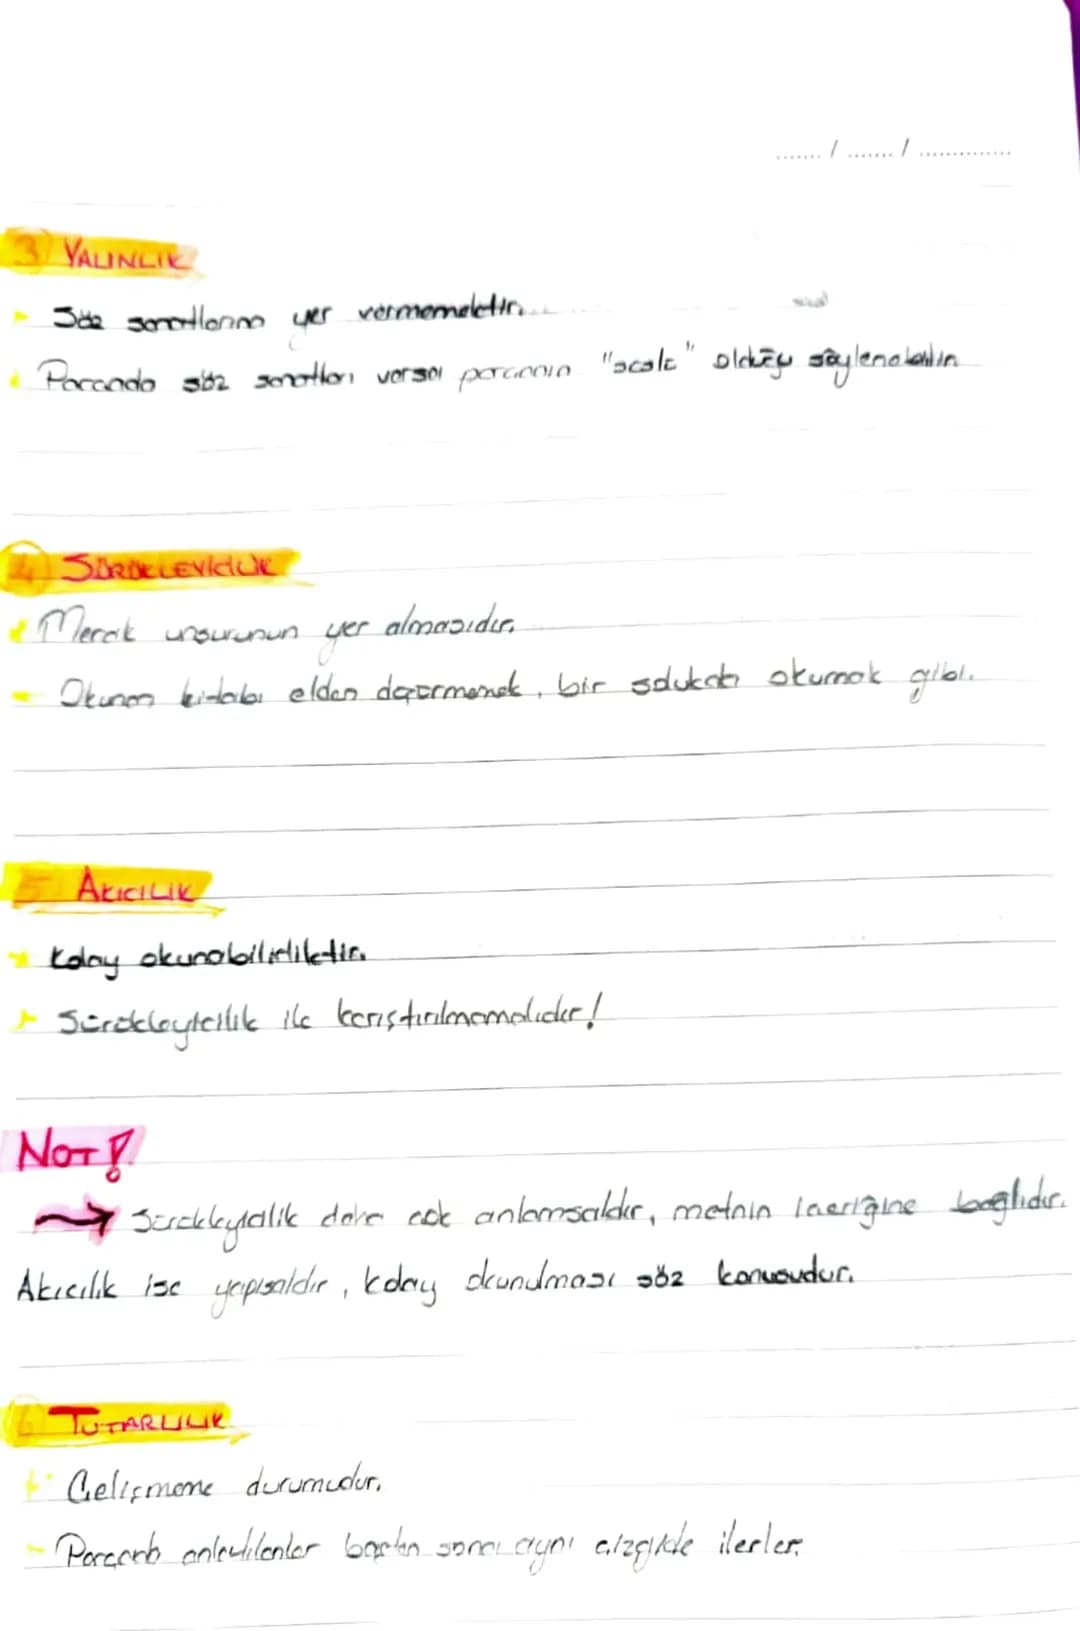 3) YALINLIK
Söz sanatlarına yer vermemektir.
Parçada söz sanatları varsa parçanın olduğu söylenebilir
4) SÜRÜKLEYİCİLİK
Merak unsurunun yer almasıdır.
Okunan kitabı elden düşürmemek, bir solukta okumak gibi.
5 AKICILIK
Kolay okunabilirliktir.
Sürükleyicilik ile karıştırılmamalıdır!
NOT!
Sürükleyicilik daha çok anlamsaldır, metnin içeriğine bağlıdır.
Akıcılık ise yapısaldır, kolay okunulması söz konusudur.
6 TUTARLILIK
Çelişmeme durumudur.
Parçada anlatılanlar baştan sona aynı çizgide ilerler.